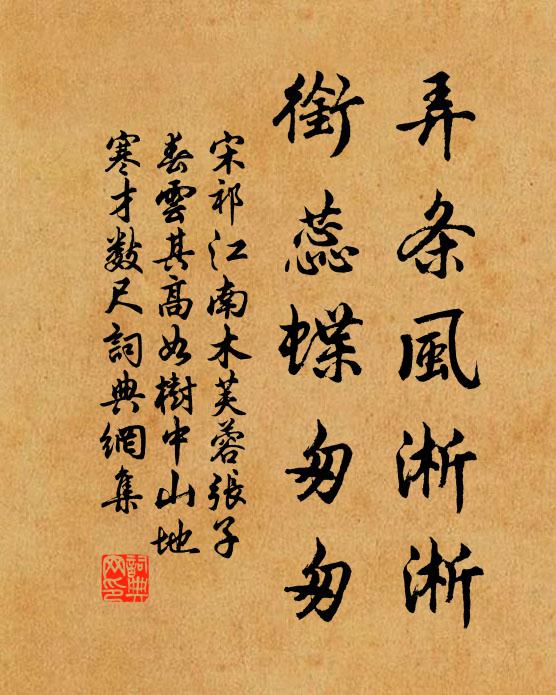 弄条風淅淅
銜蕊蝶匆匆
宋祁江南木芙蓉張子
春雲其高如樹中山地
寒才数尺詞典網集
詞典网印